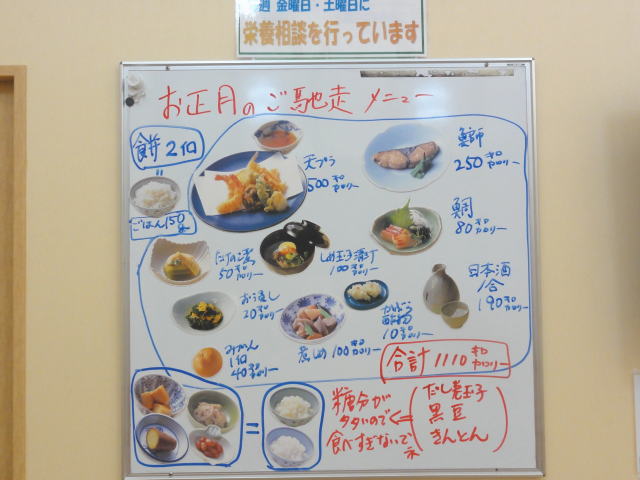 週 金曜日・土曜日に
栄養相談を行っています
お正月のご馳走 メニュー
餅2個
=
ごはん150g
天プラ
500キロカロリー
鰤
250キロカロリー
鯛
80キロカロリー
たけの煮
50キロカロリー
しめ玉子清汁
100キロカロリー
日本酒
1合
190キロカロリー
お浸し
20キロカロリー
かぶら
酢物
10キロカロリー
みかん
1個
40キロカロリー
煮しめ 100キロカロリー
合計 1110キロカロリー
=
糖分が
多いので
食べすぎないでネ
だし巻玉子
黒豆
きんとん